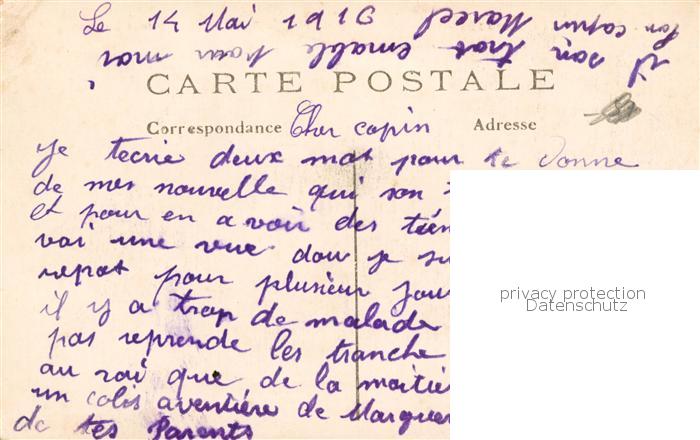 Le 14 Mai 1919
il son trop emable pour moi
Ton copin Marcel
CARTE POSTALE
Correspondance Cher copin Adresse
Je tecrie deux mot pour te donne
de mes nouvelle qui son
et pour en avoir des
vai une vue dou je
repot pour plusieur
il y a trop de malade
pas reprende les tranche
au roi que de la moitié
un colis aventiére de
de tes Parents
privacy protection
Datenschutz